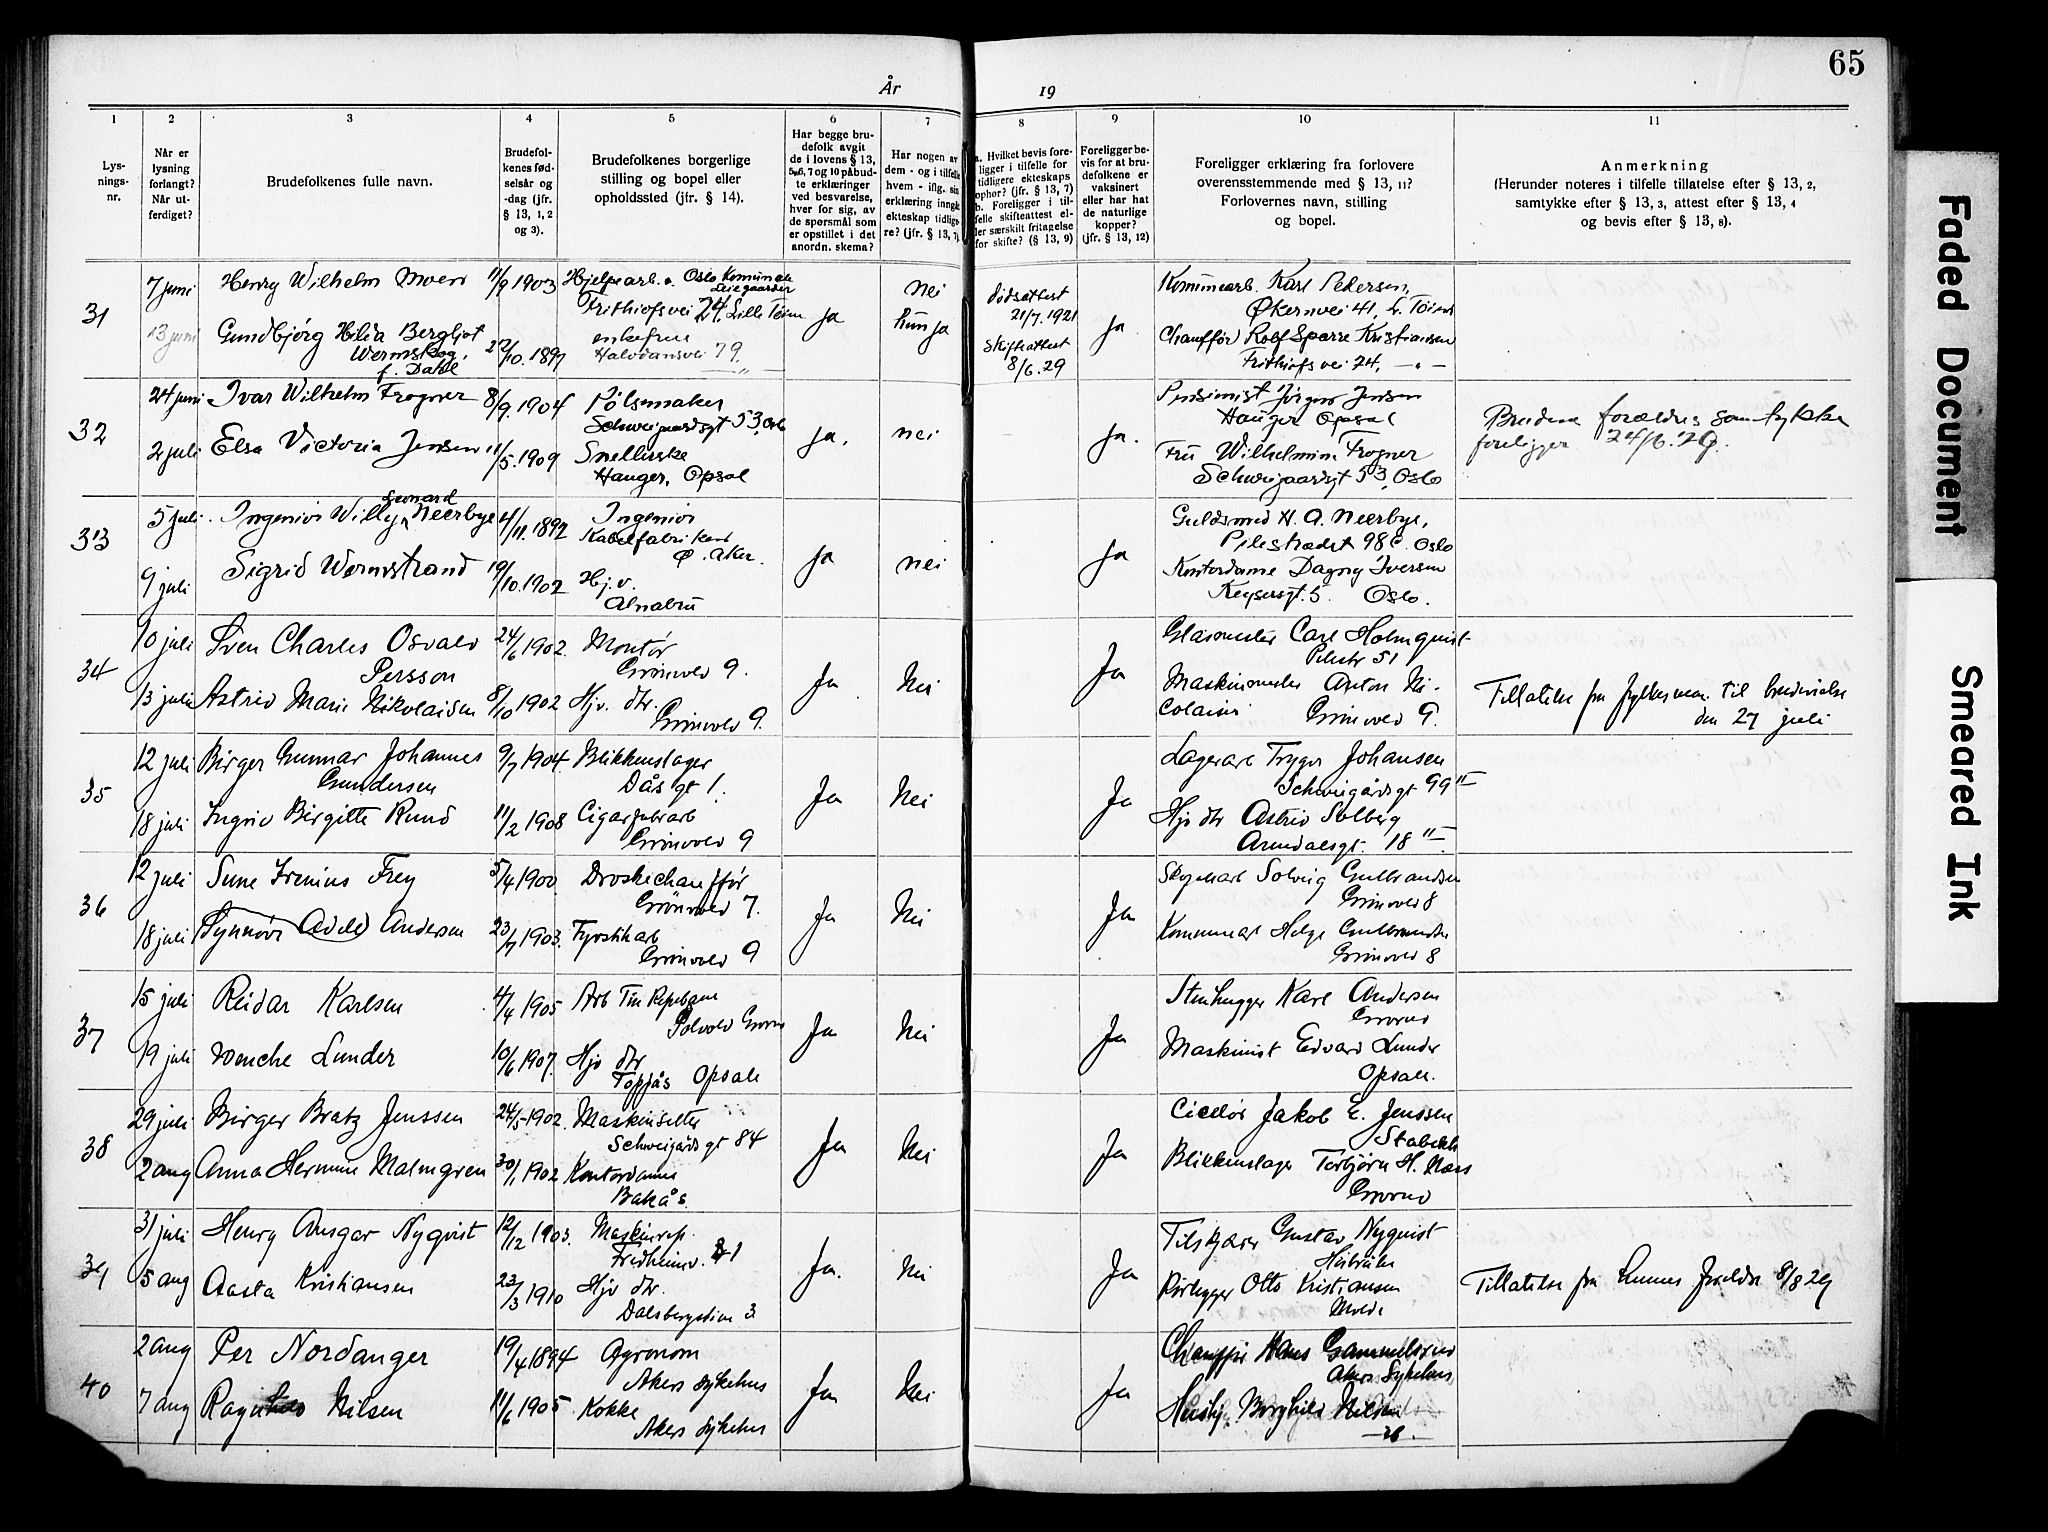 65
År 19
1
2
3
4
5
6
7
8
9
10
11
Lys-
nings-
nr.
Når er
lysning
forlangt?
Når ut-
ferdiget?
Brudefolkenes fulle navn.
Brudefol-
kenes fød-
selsår og
-dag (jfr.
§ 13, 1, 2
og 3).
Brudefolkenes borgerlige
stilling og bopel eller
opholdssted (jfr. § 14).
Har begge bru-
defolk avgit
de i lovens § 13,
5, 6, 7 og 10 påbud-
te erklæringer
ved besvarelse,
hver for sig, av
de spørsmål som
er opstillet i det
anordn. skema?
Har nogen av
dem - og i tilfelle
hvem - iflg. sin
erklæring inngått
ekteskap tidlige-
re? (jfr. § 13, 7)
a. Hvilket bevis fore-
ligger i tilfelle for
tidligere ekteskaps
ophør? (jfr. § 13, 7)
b. Foreligger i til-
felle skifteattest el-
ler særskilt fritagelse
for skifte? (§ 13, 9)
Foreligger be-
vis for at bru-
defolkene er
vaksinert
eller har hat
de naturlige
kopper?
(jfr. § 13, 12)
Foreligger erklæring fra forlovere
overensstemmende med § 13, 11?
Forlovernes navn, stilling
og bopel.
Anmerkning
(Herunder noteres i tilfelle tillatelse efter § 13, 2,
samtykke efter § 13, 3, attest efter § 13, 4
og bevis efter § 13, 8).
31
7 juni
13 juni
Henry Wilhelm Moen
Gundbjørg Hilda Bergljot
Wermskog,
f. Dahl
11/9 1903
22/10. 1897
Hjelpearb. v. Oslo Komunale
Leiegaarder
Frithiofsvei 24, Lille Tøien
enkefrue
Halvdansvei 79. —"—
ja
nei
hun ja
dødsattest
21/7. 1921
Skifteattest
8/6. 29
ja
Komunearb. Karl Pedersen,
Økernvei 41, L. Tøien
Chauffør Rolf Sparre Kristiansen
Frithiofsvei 24, —"—
32
24 juni
2 juli
Ivar Wilhelm Frogner
Elsa Victoria Jensen
8/9. 1904
11/5. 1909
Pølsemaker
Schweigaardsgt 53, Oslo
Snellerske
Hauger, Opsal
ja.
nei
ja.
Pensionist Jørgen Jensen
Hauger Opsal
Fru Wilhelmine Frogner
Schweigaardsgt 53, Oslo
Brudens forældres samtykke
foreligger 24/6. 29.
33
5 juli
9 juli
Ingeniør Willy Leonard Neerbye
Sigrid Wermstrand
4/11. 1892
19/10. 1902
Ingeniør
Kabelfabriken
Ø. Aker.
Hj. v.
Alnabru
ja
nei
ja
Guldsmed H. A. Neerbye,
Pilestrædet 98 C. Oslo
Kontordame Dagny Iversen
Keysersgt. 5. Oslo.
34
10 juli
13 juli
Sven Charles Osvald
Persson
Astrid Marie Nikolaisen
24/6 1902.
8/10 1902
Montør
Grønvold 9.
Hjv. dtr.
Grønvold 9.
Ja
Nei
Ja
Glasmester Carl Holmquist
Pilestr 51
Maskinmester Anton Ni-
colaisen Grønvold 9.
Tillatelse fra fylkesman. til brudevielse
den 27 juli
35
12 juli
18 juli
Birger Gunnar Johannes
Gundersen
Ingrid Birgitte Rund
9/7 1904.
11/2 1908
Blikkenslager
Dås gt 1.
Cigarfabrarb
Grønvold 9
Ja
Nei
Ja
Lagerarb Trygve Johansen
Schweigårdsgt 99 II
Hjv dtr Astrid Solberg
Arendalsgt. 18 II.
36
12 juli
18 juli
Sune Irenius Frey
Synnøve Adele Andersen
5/4 1900
23/7 1903.
Droskechauffør
Grønvold 7.
Fyrstikkarb
Grønvold 9
Ja
Nei
Ja
Skoglarb Solveig Gulbrandsen
Grønvold 8
Kommunearb Helge Gulbrandsen
Grønvold 8
37
15 juli
19 juli
Reidar Karlsen
Wenche Lunder
4/4 1905
10/6 1907.
Arb Tin Repslagerbane
Solvold Grorud
Hjv dtr
Toppås Opsal
Ja
Nei
Ja
Stenhugger Karl Andersen
Grorud
Maskinist Edvard Lunder
Opsal.
38
29 juli
2 aug
Birger Bratz Jenssen
Anna Hermine Malmgren
24/5-1902.
30/1 1902
Maskinsetter
Schweigårds gt 84
Kontordame
Bakås.
Ja
Nei
Ja
Cicelør Jakob E. Jenssen
Stabekk
Blikkenslager Torbjørn H. Næss
Grorud
39
31 juli
5 aug
Henry Ansgar Nyqvist
Aasta Kristiansen
12/12 1903.
23/3 1910
Maskinrep.
Fredheimv. 1
Hjv dtr.
Dalsbergstien 3
Ja.
Nei
Ja
Tilskjærer Gustav Nyquist
Rørlegger Otto Kristiansen
Tillatelse fra hennes foreldre 8/8 29
40
2 aug
7 aug
Per Nordanger
Ragnhild Nilsen
19/4 1894
11/6 1905
Agronom
Akers Sykehus
Kokke
Akers Sykehus
Ja
Nei
Ja
Chauffør Hans Gammelsrud
Akers Sykehus
Hushj. Borghild Nilsen
Faded Document
Smeared Ink